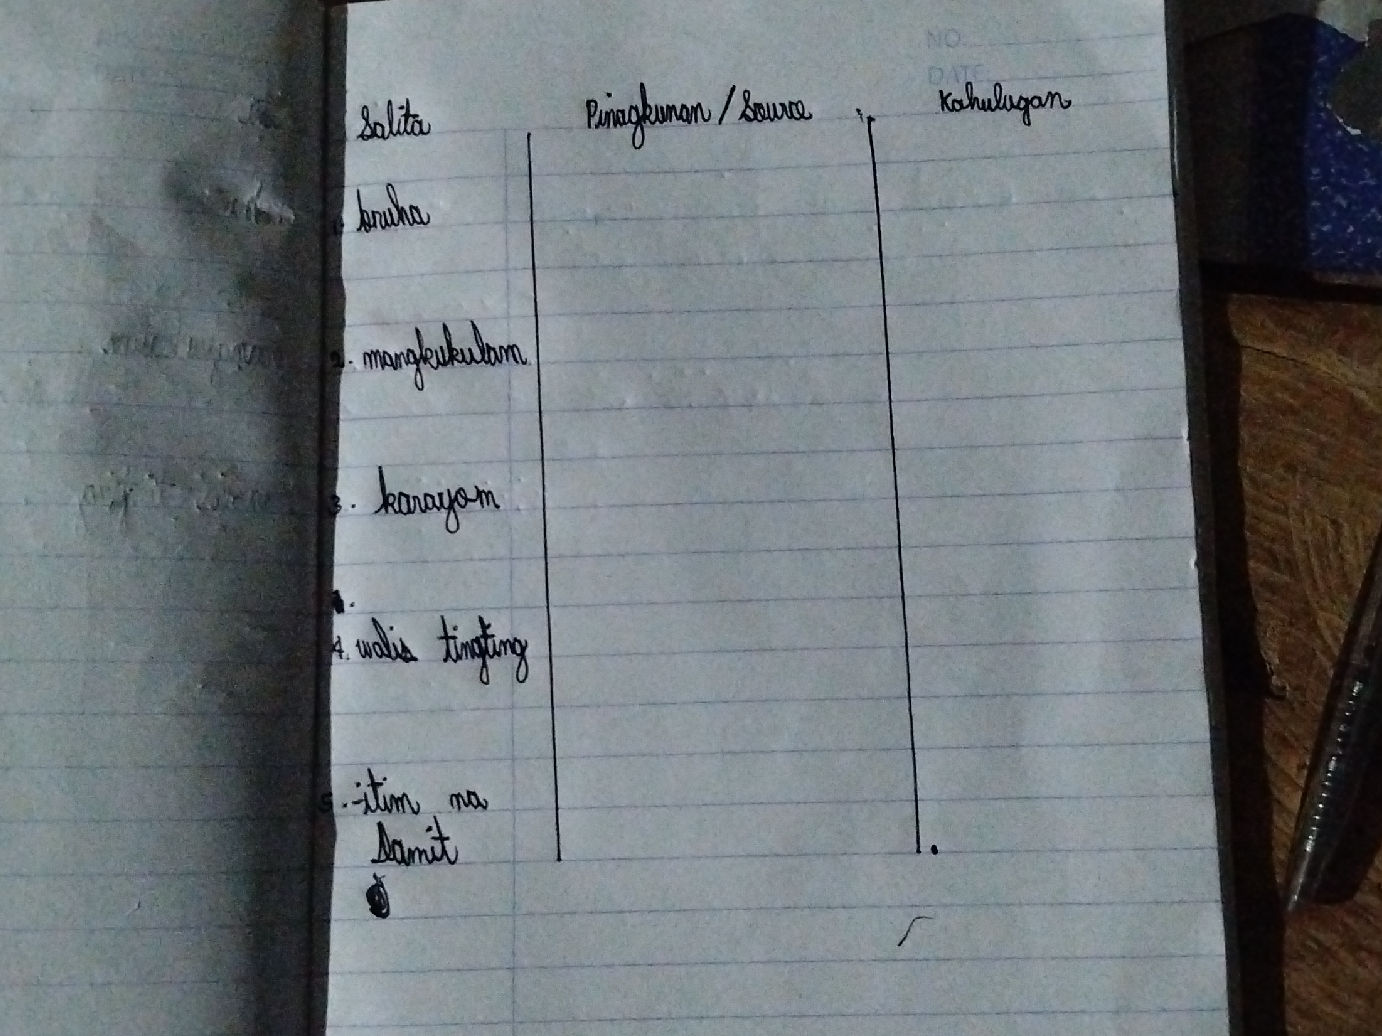 NO.
DATE
Salita Pinagkunan / Source Kahulugan
1. bruha
2. mangkukulam
3. karayom
4. walis tingting
5. itim na
damit